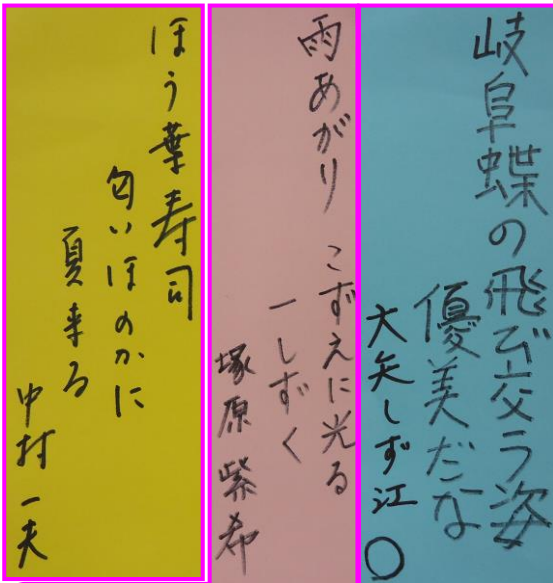 岐阜蝶の飛び交う姿
優美だな
大矢しず江
雨あがり こずえに光る
一しずく
塚原紫希
ほう葉寿司
匂いほのかに
夏来る
中村一夫